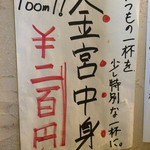 つもの一杯を
少し特別な一杯に。
金宮中身
100m!!
¥二百円